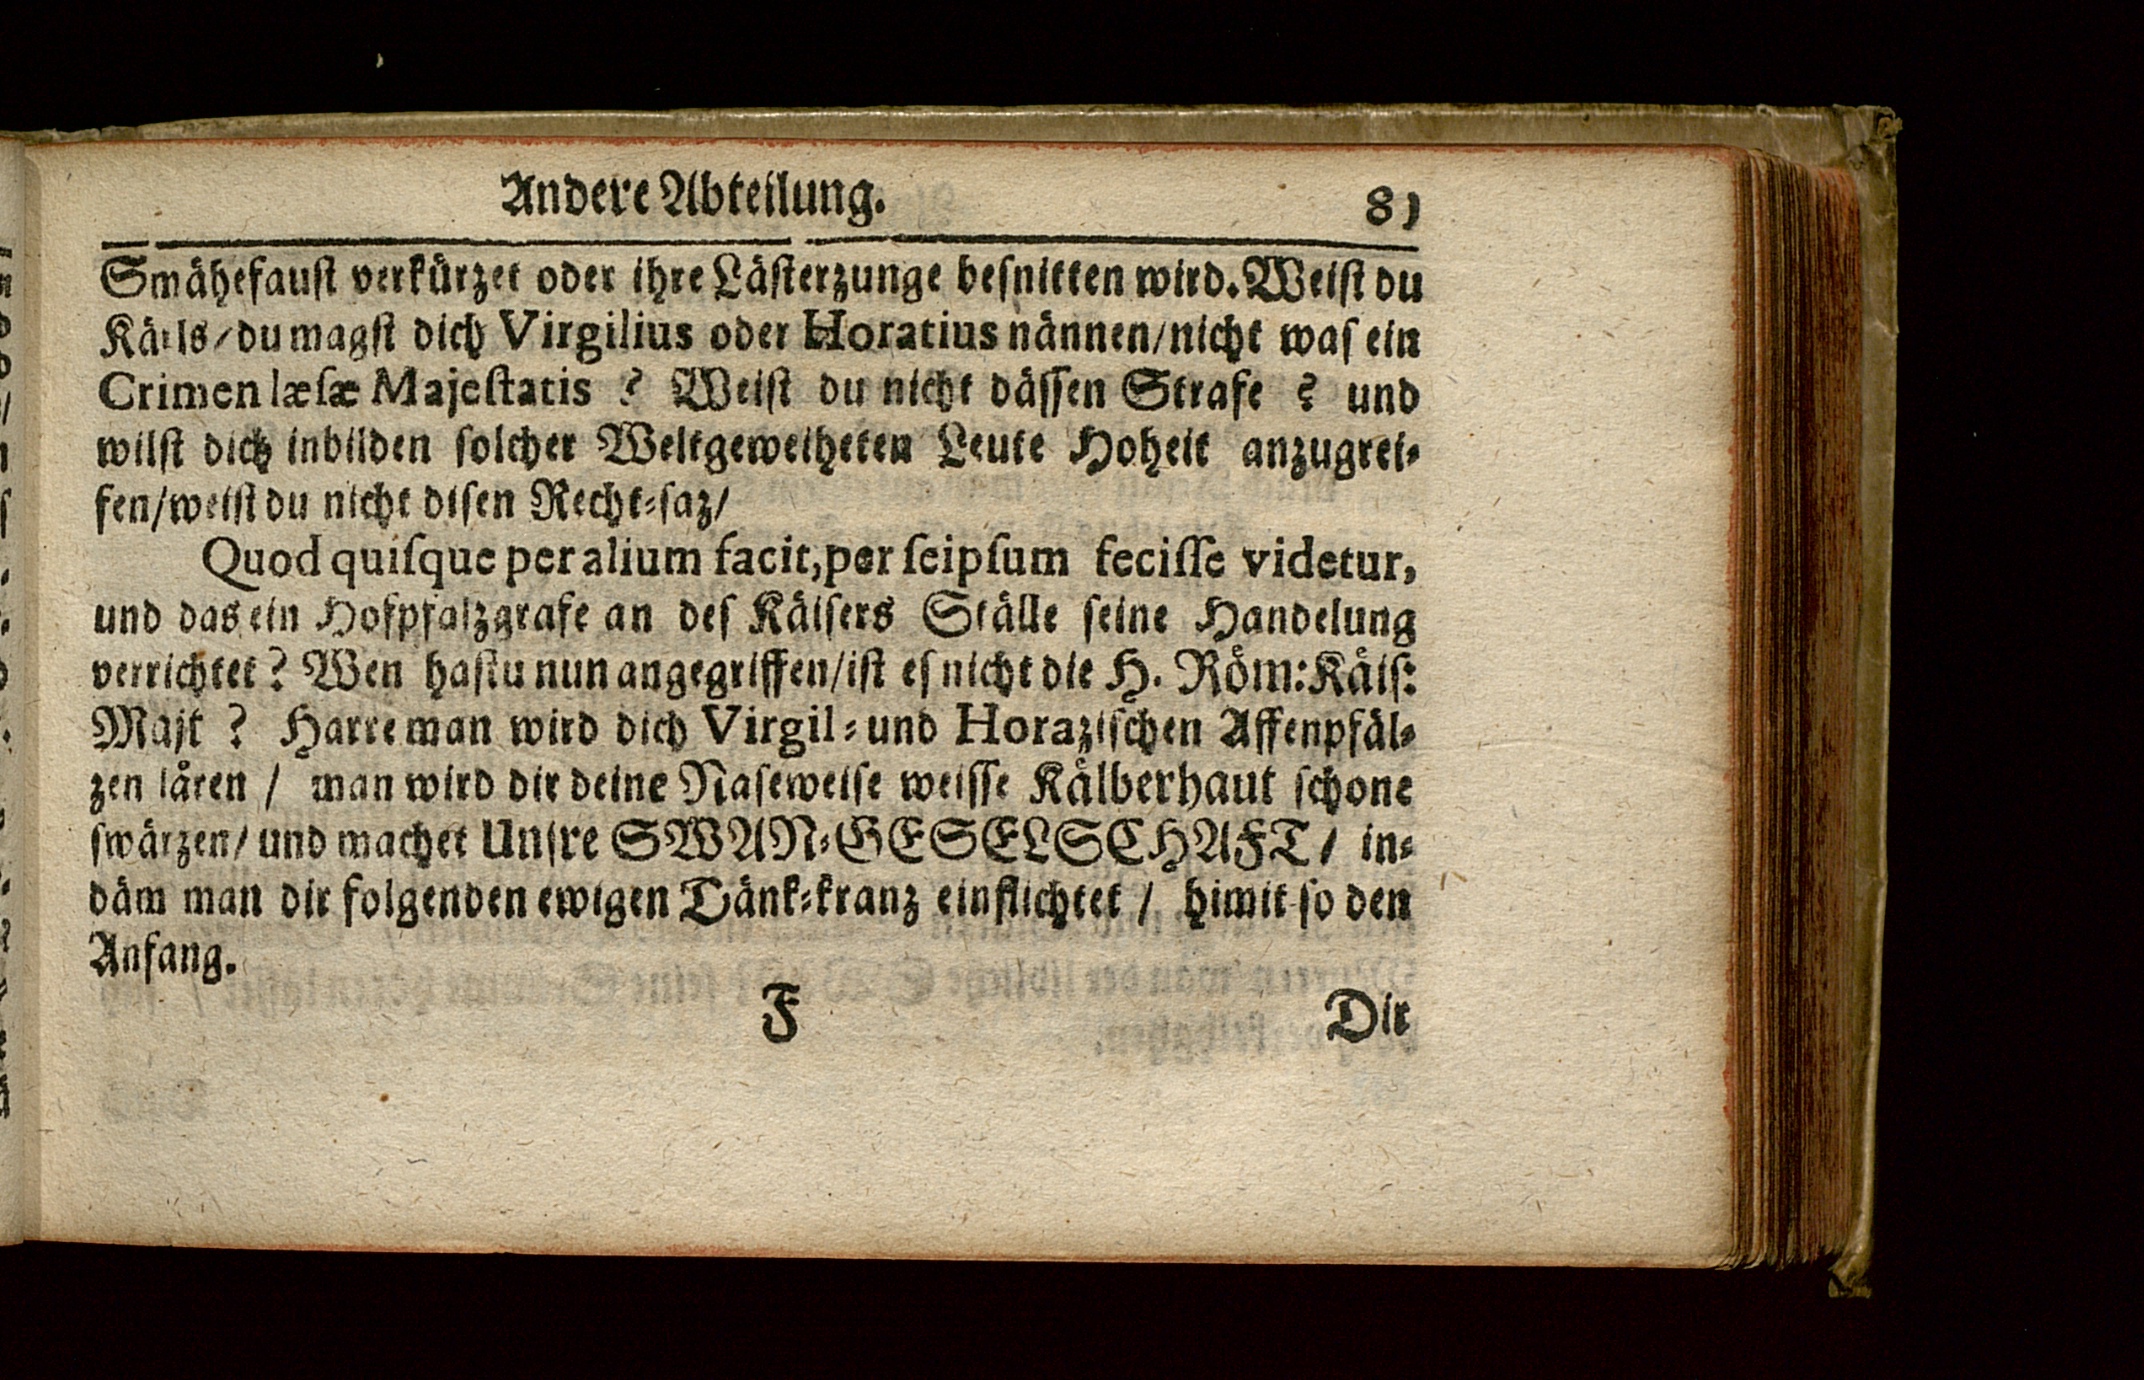 Andere Abteilung. 81
Smähefauſt verkürzet oder ihre Läſterzunge beſnitten wird. Weiſt du
Kärls/ du magſt dich Virgilius oder Horatius nännen/ nicht waſ ein
Crimen læſæ Majeſtatis ? Weiſt du nicht däſſen Strafe ? und
wilſt dich inbilden ſolcher Weltgeweiheten Leute Hoheit anzugrei⸗
fen/ weiſt du nicht diſen Recht⸗ſaz/
Quod quiſque per alium facit, per ſeipſum feciſſe videtur,
und das ein Hofpfalzgrafe an deſ Käiſers Ställe ſeine Handelung
verrichtet? Wen haſtu nun angegriffen/ iſt eſ nicht die H. Röm: Käiſ:
Majt ? Harre man wird dich Virgil⸗ und Horaziſchen Affenpfäl⸗
zen låren / man wird dir deine Naſeweiſe weiſſe Kälberhaut ſchone
ſwärzen/ und machet Unſre SWAN⸗GESELSCHAFT/ in⸗
däm man dir folgenden ewigen Dänk⸗kranz einflichtet / himit ſo den
Anfang.
F Dir